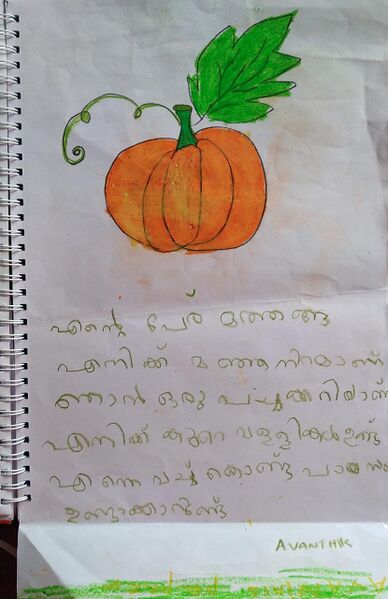 എന്റെ പേര് മത്തങ്ങ
എനിക്ക് മഞ്ഞനിറമാണ്
ഞാൻ ഒരു പച്ചക്കറിയാണ്
എനിക്ക് കുറെ വള്ളികൾഉണ്ട്
എന്നെ വച്ച് കൊണ്ടു
ഉണ്ടാക്കാറുണ്ട്
AVANTHIK